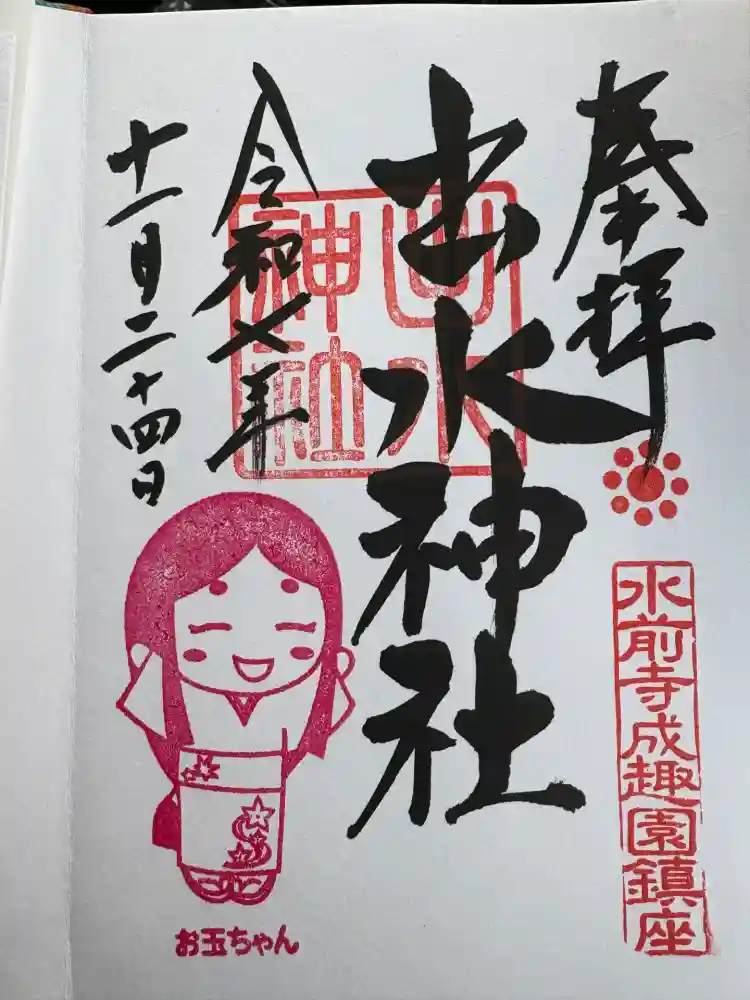 奉拝
水前寺成趣園鎮座
出水神社
出水
神社
令和七年
十一月二十四日
お玉ちゃん